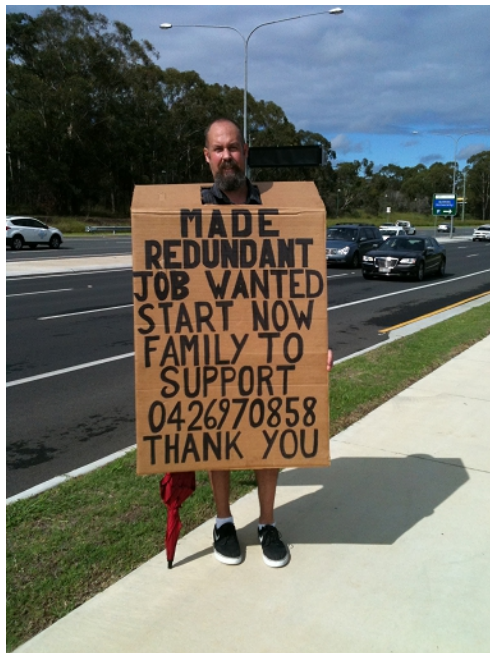 MADE
REDUNDANT
JOB WANTED
START NOW
FAMILY TO
SUPPORT
0426970858
THANK YOU